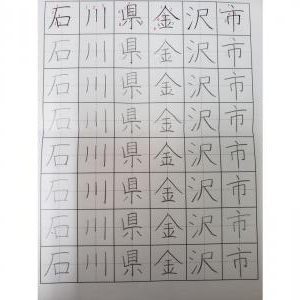 石川県金沢市
石川県金沢市
石川県金沢市
石川県金沢市
石川県金沢市
石川県金沢市
石川県金沢市
石川県金沢市